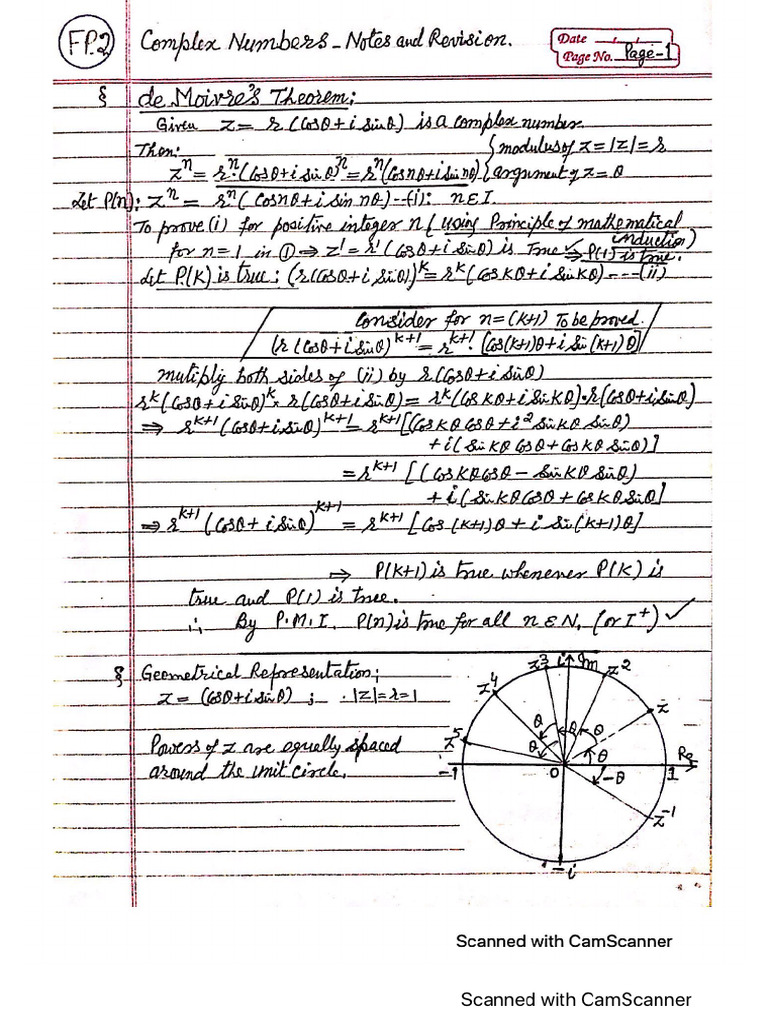 FP.2 Complex Numbers - Notes and Revision.
Date
Page No. Page-1
§ de Moivre's Theorem:
Given z = r(Cosθ+i Sinθ) is a complex number.
Then: {modulus of z = |z| = r
zⁿ = rⁿ.(Cosθ+i Sinθ)ⁿ = rⁿ(Cosnθ+i Sin nθ) {argument of z = θ
Let P(n): zⁿ = rⁿ(Cosnθ+i Sin nθ) --(i): n∈I.
To prove (i) for positive integer n (using Principle of mathematical induction)
for n=1 in ① ⇒ z¹ = r¹(Cosθ+i Sinθ) is True ✓ ⇒ P(1) is true.
Let P(K) is true: (r(Cosθ+i Sinθ))ᵏ = rᵏ(Cos Kθ+i Sin Kθ) ---(ii)
Consider for n=(K+1) To be proved.
(r(Cosθ+i Sinθ)ᵏ⁺¹ = rᵏ⁺¹. [Cos(K+1)θ+i Sin(K+1)θ]
multiply both sides of (ii) by r(Cosθ+i Sinθ)
rᵏ(Cosθ+i Sinθ)ᵏ. r(Cosθ+i Sinθ) = rᵏ(Cos Kθ+i Sin Kθ).r(Cosθ+i Sinθ)
⇒ rᵏ⁺¹(Cosθ+i Sinθ)ᵏ⁺¹ = rᵏ⁺¹[(Cos Kθ Cosθ+i² Sin Kθ Sinθ)
+i(Sin Kθ Cosθ+Cos Kθ Sinθ)]
= rᵏ⁺¹[(Cos Kθ Cosθ - Sin Kθ Sinθ)
+i(Sin Kθ Cosθ + Cos Kθ Sinθ]
⇒ rᵏ⁺¹(Cosθ+i Sinθ)ᵏ⁺¹ = rᵏ⁺¹[Cos(K+1)θ+i Sin(K+1)θ]
⇒ P(K+1) is true whenever P(K) is
true and P(1) is true.
∴ By P.M.I. P(n) is true for all n∈N, (or I⁺) ✓
§ Geometrical Representation;
z = (Cosθ+i Sinθ) ; |z| = r = 1
Powers of z are equally spaced
around the unit circle.
z³ i Im z²
z⁴ z
z⁵ θ θ θ θ θ
-1 0 -θ 1 Re
z⁻¹
-i
Scanned with CamScanner
Scanned with CamScanner